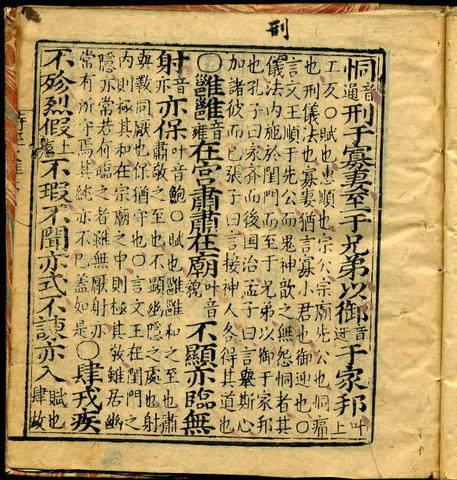 刑
恫音通刑于寡妻至于兄弟以御音迓于家邦叶上
工反○賦也惠順也宗公宗廟先公也恫痛
也刑儀法也寡妻猶言寡小君也御迎也○
言文王順于先公而鬼神歆之無怨恫者其
儀法內施於閨門而至于兄弟以御于家邦
也孔子曰家齊而後国治孟子曰言舉斯心
加諸彼而已張子曰言接神人各得其道也
○雝雝音雍在宮肅肅在廟叶音貌不顯亦臨無
射音亦亦保叶音鮑○賦也雝雝和之至也肅
肅敬之至也不顯幽隱之處也射
與斁同厭也保猶守也○言文王在閨門之
內則極其和在宗廟之中則極其敬雖居幽
隱亦常若有臨之者雖無厭射亦
常有所守焉其純亦不已蓋如是○肆戎疾
不殄烈假上不瑕不聞亦式不諫亦入賦也
肆故